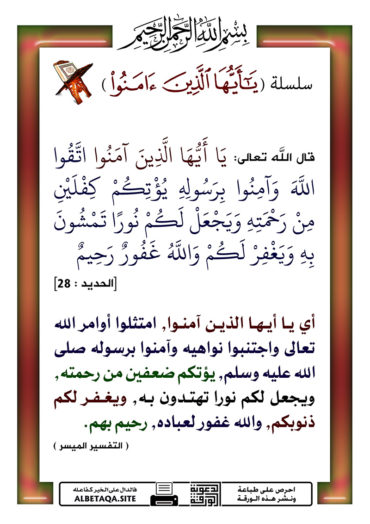 بسم الله الرحمن الرحيم
سلسلة (يَٰٓأَيُّهَا ٱلَّذِينَ ءَامَنُواْ)
قال الله تعالى: يَا أَيُّهَا الَّذِينَ آمَنُوا اتَّقُوا
اللَّهَ وَآمِنُوا بِرَسُولِهِ يُؤْتِكُمْ كِفْلَيْنِ
مِنْ رَحْمَتِهِ وَيَجْعَلْ لَكُمْ نُورًا تَمْشُونَ
بِهِ وَيَغْفِرْ لَكُمْ وَاللَّهُ غَفُورٌ رَحِيمٌ
[الحديد : 28]
أي يا أيها الذين آمنوا, امتثلوا أوامر الله
تعالى واجتنبوا نواهيه وآمنوا برسوله صلى
الله عليه وسلم, يؤتكم ضعفين من رحمته,
ويجعل لكم نورا تهتدون به, ويغفر لكم
ذنوبكم, والله غفور لعباده, رحيم بهم.
( التفسير الميسر )
احرص على طباعة
ونشر هذه الورقة
الورقة الدعوية
فالدال على الخير كفاعله
ALBETAQA.SITE